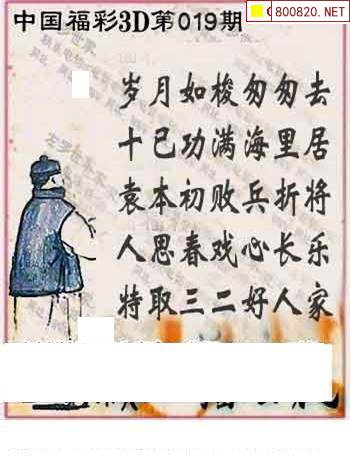 中国福彩3D第019期
800820.NET
岁月如梭匆匆去
十已功满海里居
袁本初败兵折将
人思春戏心长乐
特取三二好人家